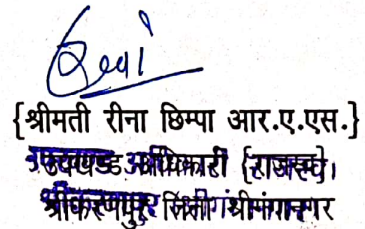 {श्रीमती रीना छिम्पा आर.ए.एस.}
उपखण्ड अधिकारी {राजस्व}
श्रीकरणपुर श्रीगंगानगर